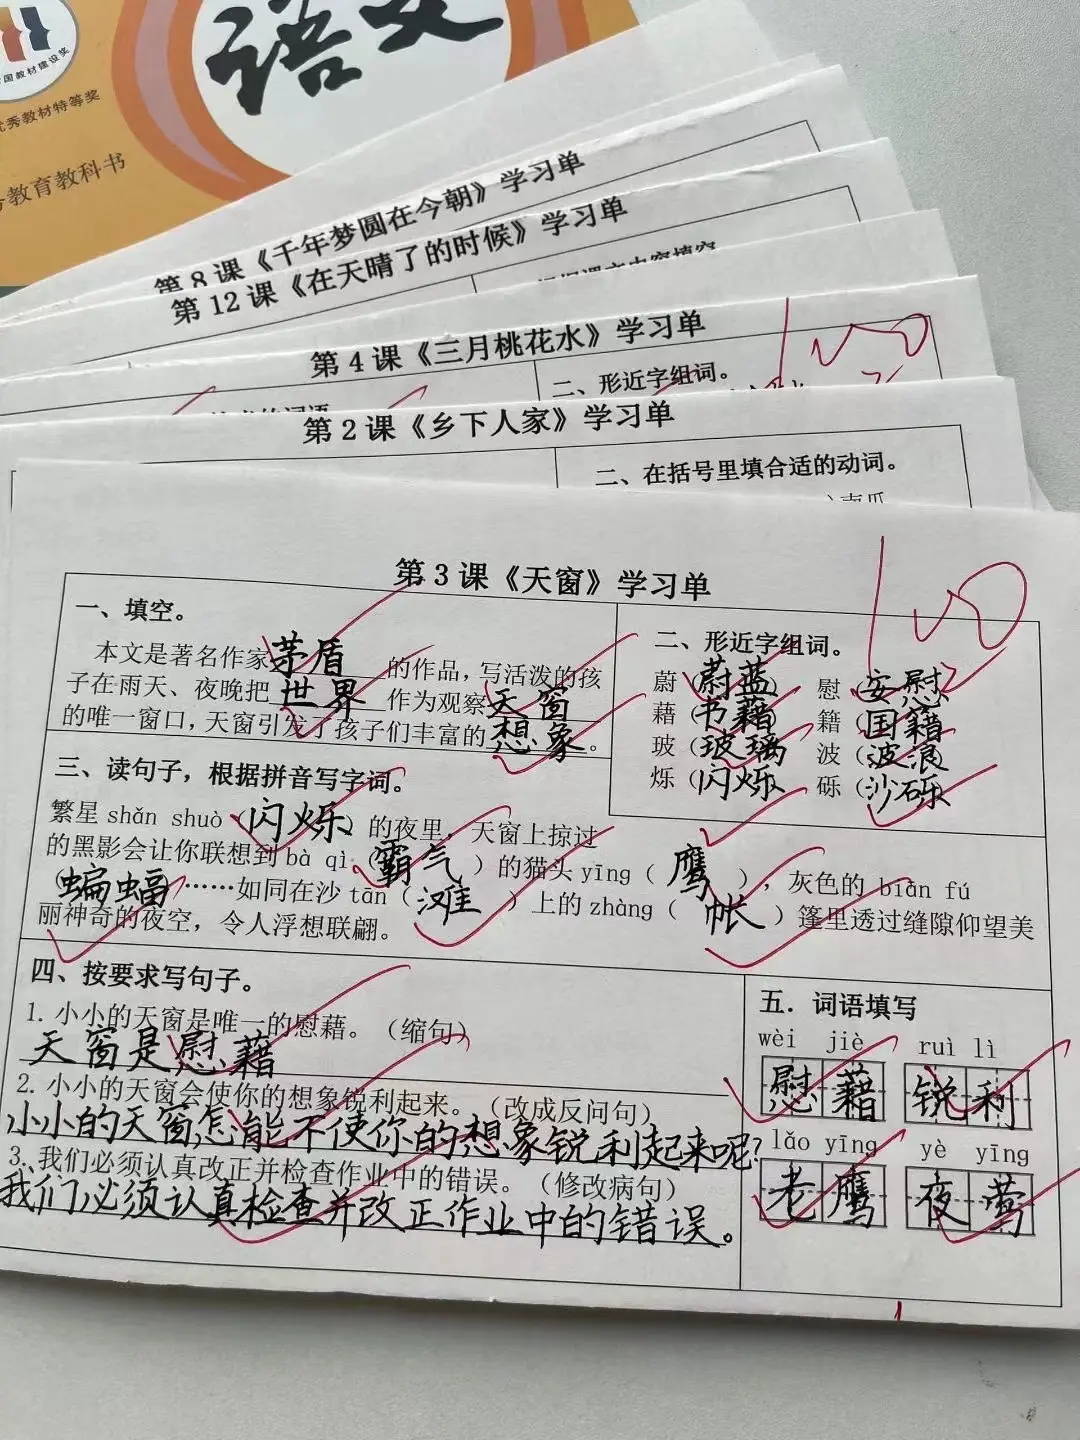 语文
国教材建设奖
优秀教材特等奖
教育教科书
第 8 课《千年梦圆在今朝》学习单
第 12 课《在天晴了的时候》学习单
第 4 课《三月桃花水》学习单
二、形近字组词。
100
第 2 课《乡下人家》学习单
二、在括号里填合适的动词。
第 3 课《天窗》学习单
100
一、填空。
本文是著名作家茅盾的作品，写活泼的孩
子在雨天、夜晚把世界作为观察天窗
的唯一窗口，天窗引发了孩子们丰富的想象。
二、形近字组词。
蔚（蔚蓝） 慰（安慰）
藉（书藉） 籍（国籍）
玻（玻璃） 波（波浪）
烁（闪烁） 砾（沙砾）
三、读句子，根据拼音写字词。
繁星 shǎn shuò（闪烁）的夜里，天窗上掠过
的黑影会让你联想到 bà qì（霸气）的猫头 yīng（鹰），灰色的 biān fú
（蝙蝠）……如同在沙 tān（滩）上的 zhàng（帐）篷里透过缝隙仰望美
丽神奇的夜空，令人浮想联翩。
四、按要求写句子。
1. 小小的天窗是唯一的慰藉。（缩句）
天窗是慰藉
2. 小小的天窗会使你的想象锐利起来。（改成反问句）
小小的天窗怎能不使你的想象锐利起来呢？
3. 我们必须认真改正并检查作业中的错误。（修改病句）
我们必须认真检查并改正作业中的错误。
五．词语填写
wèi jiè ruì lì
慰藉 锐利
lǎo yīng yè yīng
老鹰 夜莺